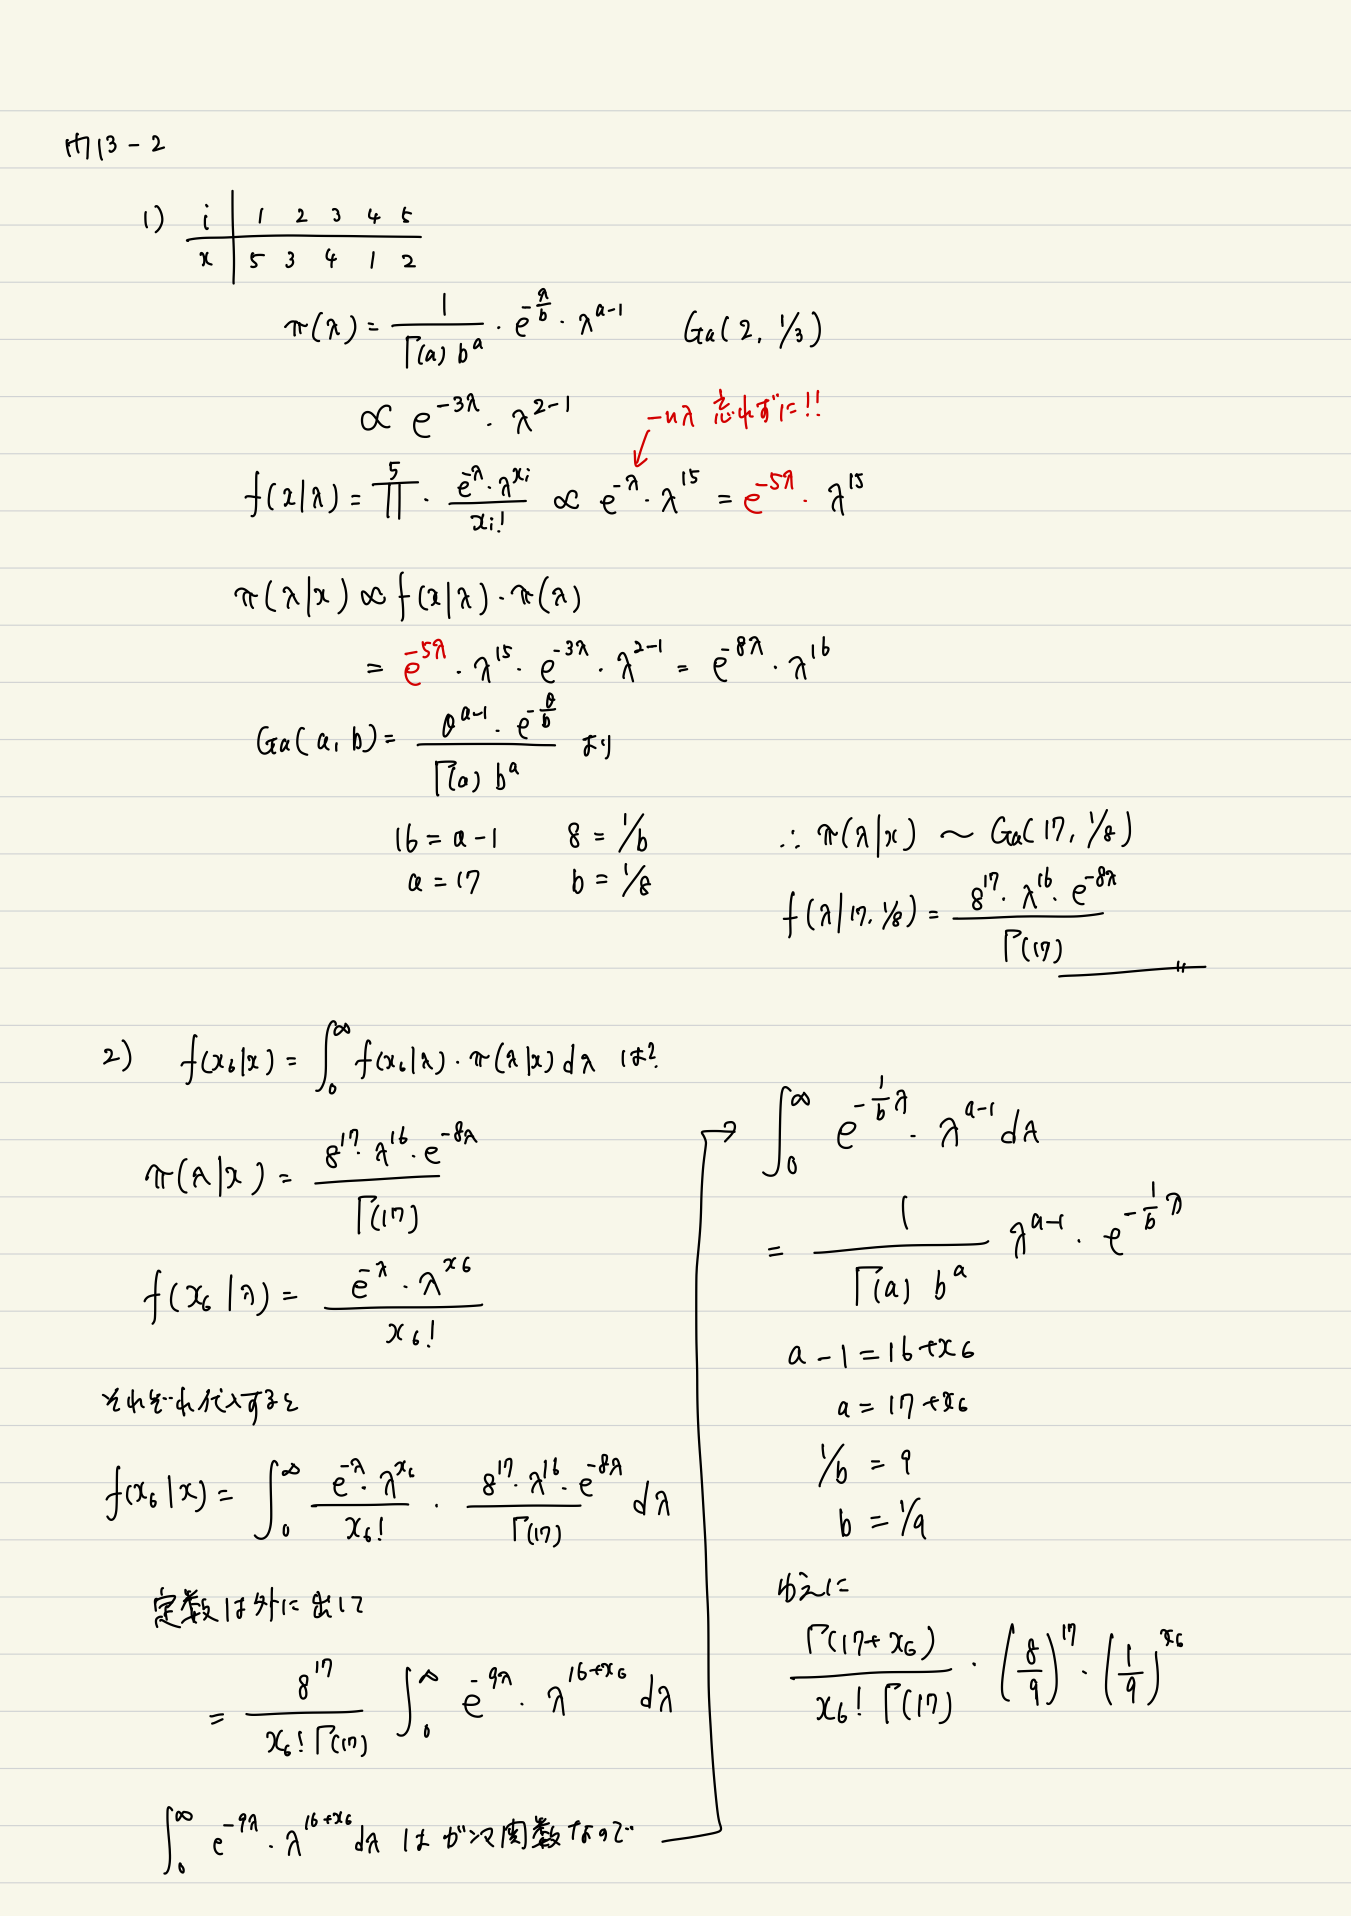 問13-2
1) i | 1 2 3 4 5
x | 5 3 4 1 2
π(λ) = 1/(Γ(a) b^a) · e^(-λ/b) · λ^(a-1) Ga(2, 1/3)
∝ e^(-3λ) · λ^(2-1)
-nλ 忘れずに!!
f(x|λ) = ∏^5 · (e^(-λ) · λ^(xi))/(xi!) ∝ e^(-λ) · λ^15 = e^(-5λ) · λ^15
π(λ|x) ∝ f(x|λ) · π(λ)
= e^(-5λ) · λ^15 · e^(-3λ) · λ^(2-1) = e^(-8λ) · λ^16
Ga(a, b) = (θ^(a-1) · e^(-θ/b))/(Γ(a) b^a) より
16 = a - 1 8 = 1/b
a = 17 b = 1/8
∴ π(λ|x) ~ Ga(17, 1/8)
f(λ|17, 1/8) = (8^17 · λ^16 · e^(-8λ))/Γ(17)
2) f(x6|x) = ∫_0^∞ f(x6|λ) · π(λ|x) dλ は?
π(λ|x) = (8^17 · λ^16 · e^(-8λ))/Γ(17)
f(x6|λ) = (e^(-λ) · λ^(x6))/(x6!)
それぞれ代入すると
f(x6|x) = ∫_0^∞ (e^(-λ) · λ^(x6))/(x6!) · (8^17 · λ^16 · e^(-8λ))/Γ(17) dλ
定数は外に出して
= 8^17/(x6! Γ(17)) ∫_0^∞ e^(-9λ) · λ^(16+x6) dλ
∫_0^∞ e^(-9λ) · λ^(16+x6) dλ はガンマ関数なので
→ ∫_0^∞ e^(-(1/b)λ) · λ^(a-1) dλ
= 1/(Γ(a) b^a) λ^(a-1) · e^(-(1/b)λ)
a - 1 = 16 + x6
a = 17 + x6
1/b = 9
b = 1/9
ゆえに
Γ(17+x6)/(x6! Γ(17)) · (8/9)^17 · (1/9)^(x6)